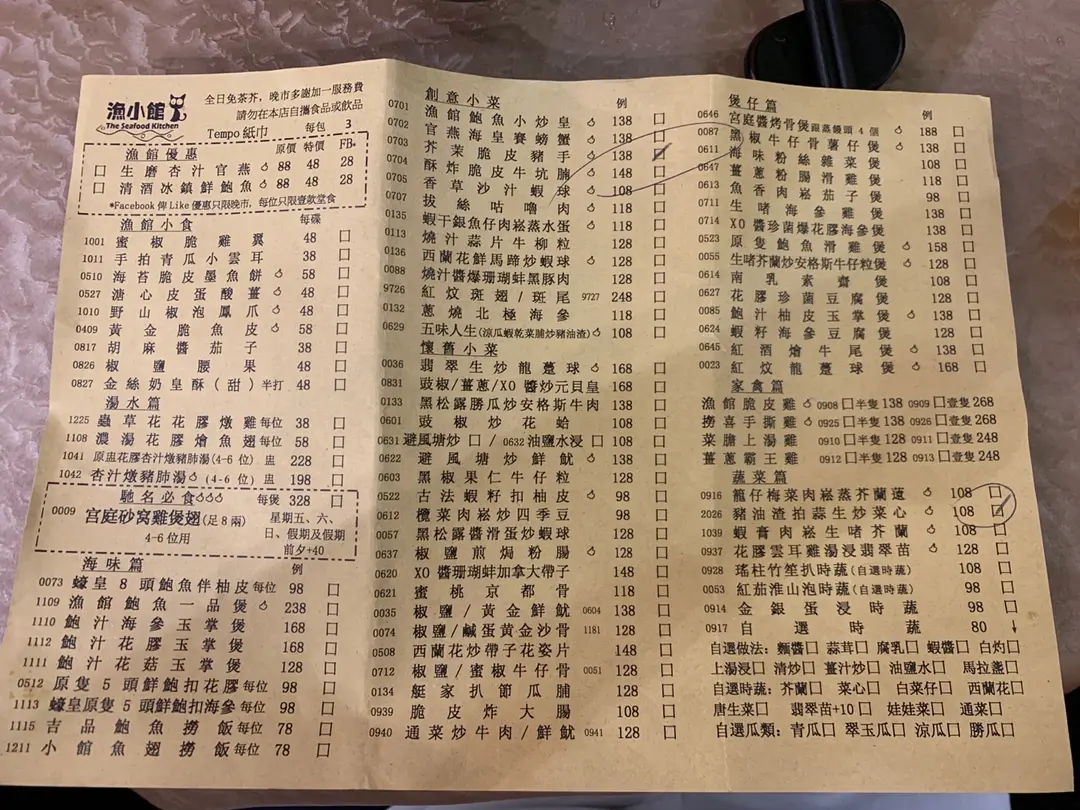 漁小館
The Seafood Kitchen
全日免茶芥，晚市多謝加一服務費
請勿在本店自攜食品或飲品
Tempo 紙巾 每包 3
漁館優惠 原價 特價 FB*
口 生磨杏汁官燕 88 48 28
口 清酒冰鎮鮮鮑魚 88 48 28
*Facebook 俾 Like 優惠只限晚市，每位只限壹款堂食
漁館小食 每碟
1001 蜜椒脆雞翼 48 口
1011 手拍青瓜小雲耳 38 口
0510 海苔脆皮墨魚餅 58 口
0527 溏心皮蛋酸薑 48 口
1010 野山椒泡鳳爪 48 口
0409 黃金脆魚皮 58 口
0817 胡麻醬茄子 38 口
0826 椒鹽腰果 48 口
0827 金絲奶皇酥（甜）半打 48 口
湯水篇
1225 蟲草花花膠燉雞 每位 38 口
1108 濃湯花膠燴魚翅 每位 58 口
1041 原盅花膠杏汁燉豬肺湯(4-6 位) 盅 228 口
1042 杏汁燉豬肺湯 (4-6 位) 盅 198 口
馳名必食 每煲 328 口
0009 宮庭砂窝雞煲翅(足 8 兩)
4-6 位用
星期五、六、
日、假期及假期
前夕+40
海味篇 例
0073 蠔皇 8 頭鮑魚伴柚皮 每位 98 口
1109 漁館鮑魚一品煲 238 口
1110 鮑汁海參玉掌煲 168 口
1112 鮑汁花膠玉掌煲 168 口
1111 鮑汁花菇玉掌煲 128 口
0512 原隻 5 頭鮮鮑扣花膠 每位 98 口
1113 蠔皇原隻 5 頭鮮鮑扣海參 每位 98 口
1115 吉品鮑魚撈飯 每位 78 口
1211 小館魚翅撈飯 每位 78 口
創意小菜 例
0701 漁館鮑魚小炒皇 138 口
0702 官燕海皇賽螃蟹 138 口
0703 芥茉脆皮豬手 138 口
0704 酥炸脆皮牛坑腩 148 口
0705 香草沙汁蝦球 108 口
0707 拔絲咕嚕肉 118 口
0135 蝦干銀魚仔肉崧蒸水蛋 118 口
0113 燒汁蒜片牛柳粒 128 口
0136 西蘭花鮮馬蹄炒蝦球 128 口
0088 燒汁醬爆珊瑚蚌黑豚肉 128 口
9726 紅炆斑翅/斑尾 9727 248 口
0132 蔥燒北極海參 118 口
0629 五味人生(涼瓜蝦乾菜脯炒豬油渣) 108 口
懷舊小菜
0036 翡翠生炒龍躉球 168 口
0831 豉椒/薑蔥/XO 醬炒元貝皇 168 口
0133 黑松露勝瓜炒安格斯牛肉 138 口
0601 豉椒炒花蛤 108 口
0631 避風塘炒 口 / 0632 油鹽水浸 口 108 口
0622 避風塘炒鮮魷 138 口
0603 黑椒果仁牛仔粒 128 口
0522 古法蝦籽扣柚皮 98 口
0612 欖菜肉崧炒四季豆 98 口
0057 黑松露醬滑蛋炒蝦球 128 口
0637 椒鹽煎焗粉腸 128 口
0620 XO 醬珊瑚蚌加拿大帶子 148 口
0621 蜜桃京都骨 118 口
0035 椒鹽/黃金鮮魷 0604 138 口
0074 椒鹽/鹹蛋黃金沙骨 1181 128 口
0508 西蘭花炒帶子花姿片 148 口
0712 椒鹽/蜜椒牛仔骨 0051 128 口
0134 艇家扒節瓜脯 128 口
0939 脆皮炸大腸 108 口
0940 通菜炒牛肉/鮮魷 0941 128 口
煲仔篇 例
0646 宮庭醬烤骨煲 跟蒸饅頭 4 個 188 口
0087 黑椒牛仔骨薯仔煲 138 口
0611 海味粉絲雜菜煲 108 口
0647 薑蔥粉腸滑雞煲 118 口
0613 魚香肉崧茄子煲 98 口
0711 生啫海參雞煲 138 口
0714 XO 醬珍菌爆花膠海參煲 138 口
0523 原隻鮑魚滑雞煲 158 口
0055 生啫芥蘭炒安格斯牛仔粒煲 128 口
0614 南乳素齋煲 108 口
0627 花膠珍菌豆腐煲 128 口
0085 鮑汁柚皮玉掌煲 138 口
0624 蝦籽海參豆腐煲 128 口
0645 紅酒燴牛尾煲 138 口
0023 紅炆龍躉球煲 168 口
家禽篇
漁館脆皮雞 0908 口半隻 138 0909 口壹隻 268
撈喜手撕雞 0925 口半隻 138 0926 口壹隻 268
菜膽上湯雞 0910 口半隻 128 0911 口壹隻 248
薑蔥霸王雞 0912 口半隻 128 0913 口壹隻 248
蔬菜篇
0916 籠仔梅菜肉崧蒸芥蘭薳 108 口
2026 豬油渣拍蒜生炒菜心 108 口
1039 蝦膏肉崧生啫芥蘭 108 口
0937 花膠雲耳雞湯浸翡翠苗 128 口
0928 瑤柱竹笙扒時蔬(自選時蔬) 108 口
0053 紅茄淮山泡時蔬(自選時蔬) 98 口
0914 金銀蛋浸時蔬 98 口
0917 自選時蔬 80 ↓
自選做法：麵醬口 蒜茸口 腐乳口 蝦醬口 白灼口
上湯浸口 清炒口 薑汁炒口 油鹽水口 馬拉盞口
自選時蔬：芥蘭口 菜心口 白菜仔口 西蘭花口
唐生菜口 翡翠苗+10 口 娃娃菜口 通菜口
自選瓜類：青瓜口 翠玉瓜口 涼瓜口 勝瓜口